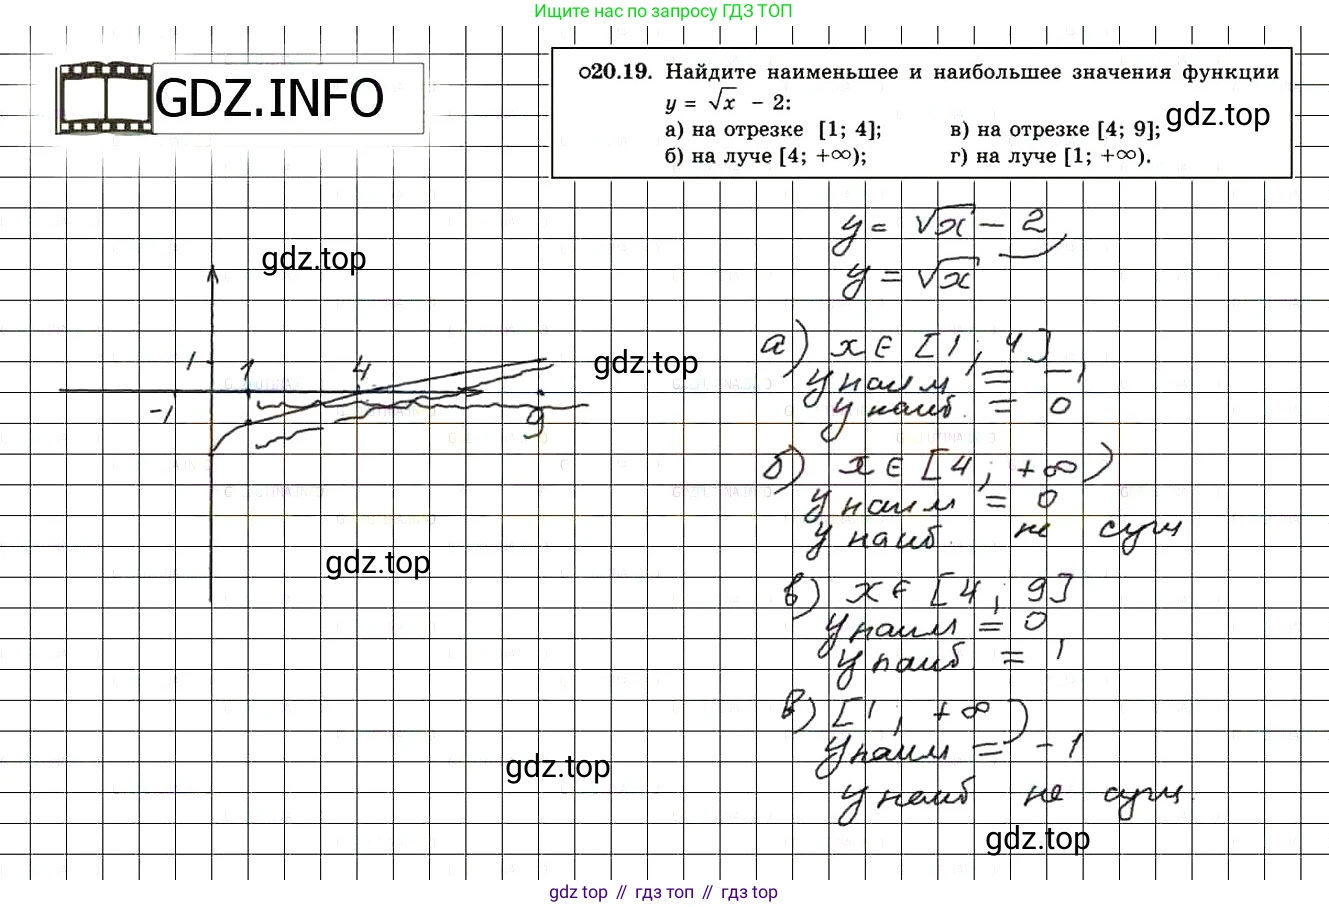 Ищите нас по запросу ГДЗ ТОП
GDZ.INFO
20.19. Найдите наименьшее и наибольшее значения функции
y = √x - 2:
gdz.top
а) на отрезке [1; 4];
в) на отрезке [4; 9];
б) на луче [4; +∞);
г) на луче [1; +∞).
y = √x - 2
y = √x
gdz.top
1
1
4
-1
9
gdz.top
а) x ∈ [1; 4]
y наим = -1
y наиб. = 0
б) x ∈ [4; +∞)
y наим = 0
y наиб. не сущ
gdz.top
в) x ∈ [4; 9]
y наим = 0
y наиб = 1
в) [1; +∞)
y наим = -1
y наиб не сущ.
gdz.top
gdz.top
gdz top // гдз топ // gdz top